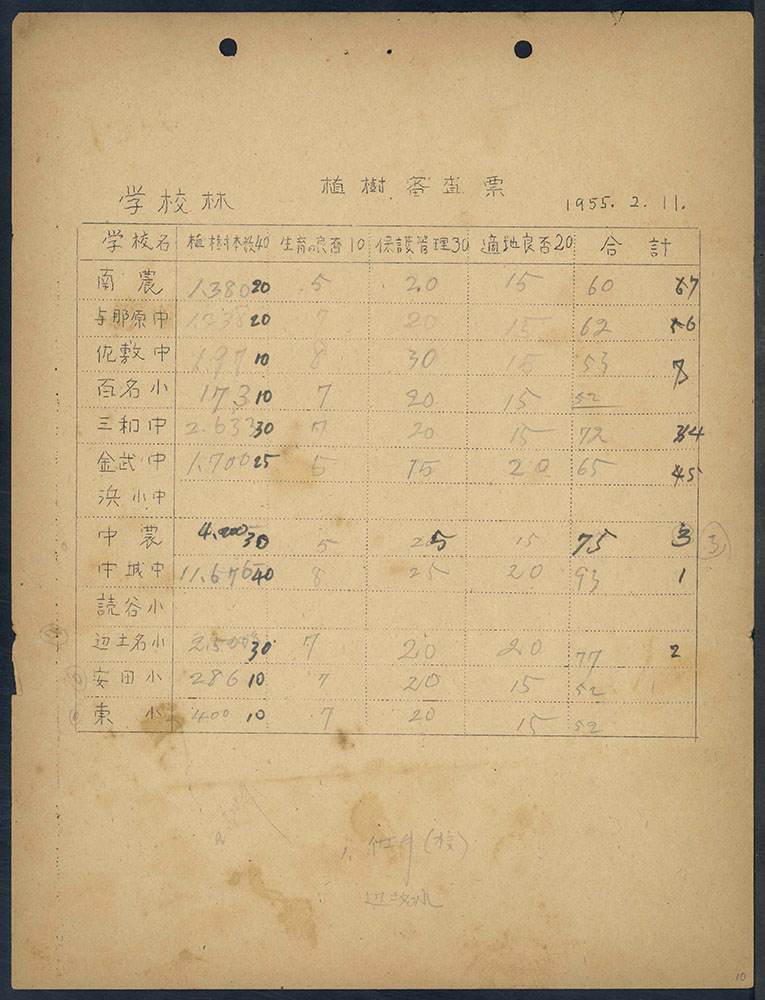 植樹審査票
学校林
1955. 2. 11.
学校名 植樹本数40 生育の良否10 保護管理30 適地良否20 合計
南農 1.380 20 5 20 15 60 7
与那原中 20 7 20 15 62 6
佐敷中 1.97 10 8 30 15 53
百名小 173 10 7 20 15 52
三和中 2.633 30 7 20 15 72 4
金武中 1.700 25 5 15 20 65 5
浜小中
中農 4.000 30 5 25 15 75 3 3
中城中 11.676 40 8 25 20 93 1
読谷小
辺土名小 2.500 30 7 20 20 77 2
安田小 286 10 7 20 15 52
東小 400 10 7 20 15 52
10